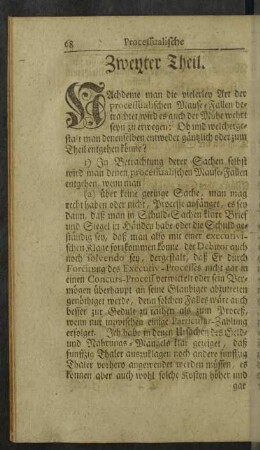 68 Processualische
Zweyter Theil.
NAchdeme man die vielerley Art der
processualischen Mause-Fallen be-
trachtet, wird es auch der Mühe wehrt
seyn zu erwegen: Ob und welcherge-
stalt man denenselben entweder gäntzlich oder zum
Theil entgehen könne?
1) In Betrachtung derer Sachen selbst
wird man denen processualischen Mause-Fallen
entgehen, wenn man
(a) über keine geringe Sache, man mag
recht haben oder nicht, Processe anfänget, es sey
dann, daß man in Schuld-Sachen klare Brief
und Siegel in Händen habe oder die Schuld ge-
ständig sey, daß man also mit einer executivi-
schen Klage fortkommen könne, der Debitor auch
noch solvendo sey, dergestalt, daß Er durch
Forcirung des Executiv-Processes nicht gar in
einen Concurs-Process verwickelt oder sein Ver-
mögen überhaupt an seine Gläubiger abzutreten
genöthiget werde, denn solchen Falles wäre auch
besser zur Gedult zu rathen als zum Proceß,
wenn nur inzwischen einige Particular-Zahlung
erfolget. Ich habe in denen Ursachen des Geld-
und Nahrungs-Mangels klar gezeiget, daß
funffzig Thaler auszuklagen noch andere funffzig
Thaler vorhero angewendet werden müssen, es
können aber auch wohl solche Kosten höher und
gar